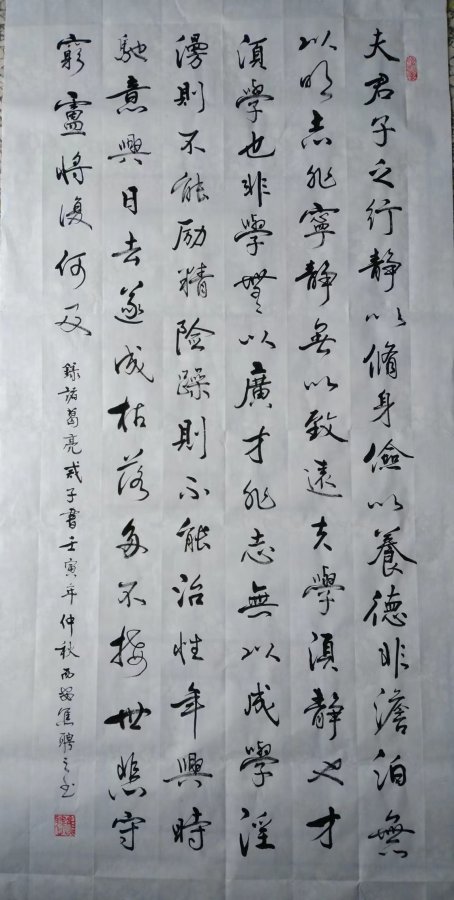 夫君子之行静以脩身儉以養德非澹泊無
以明志非寧靜無以致遠夫學須靜也才
須學也非學無以廣才非志無以成學淫
漫則不能励精险躁則不能治性年與時
馳意與日去遂成枯落多不接世悲守
窮盧將復何及
錄諸葛亮戒子書壬寅年仲秋西焦聘之书